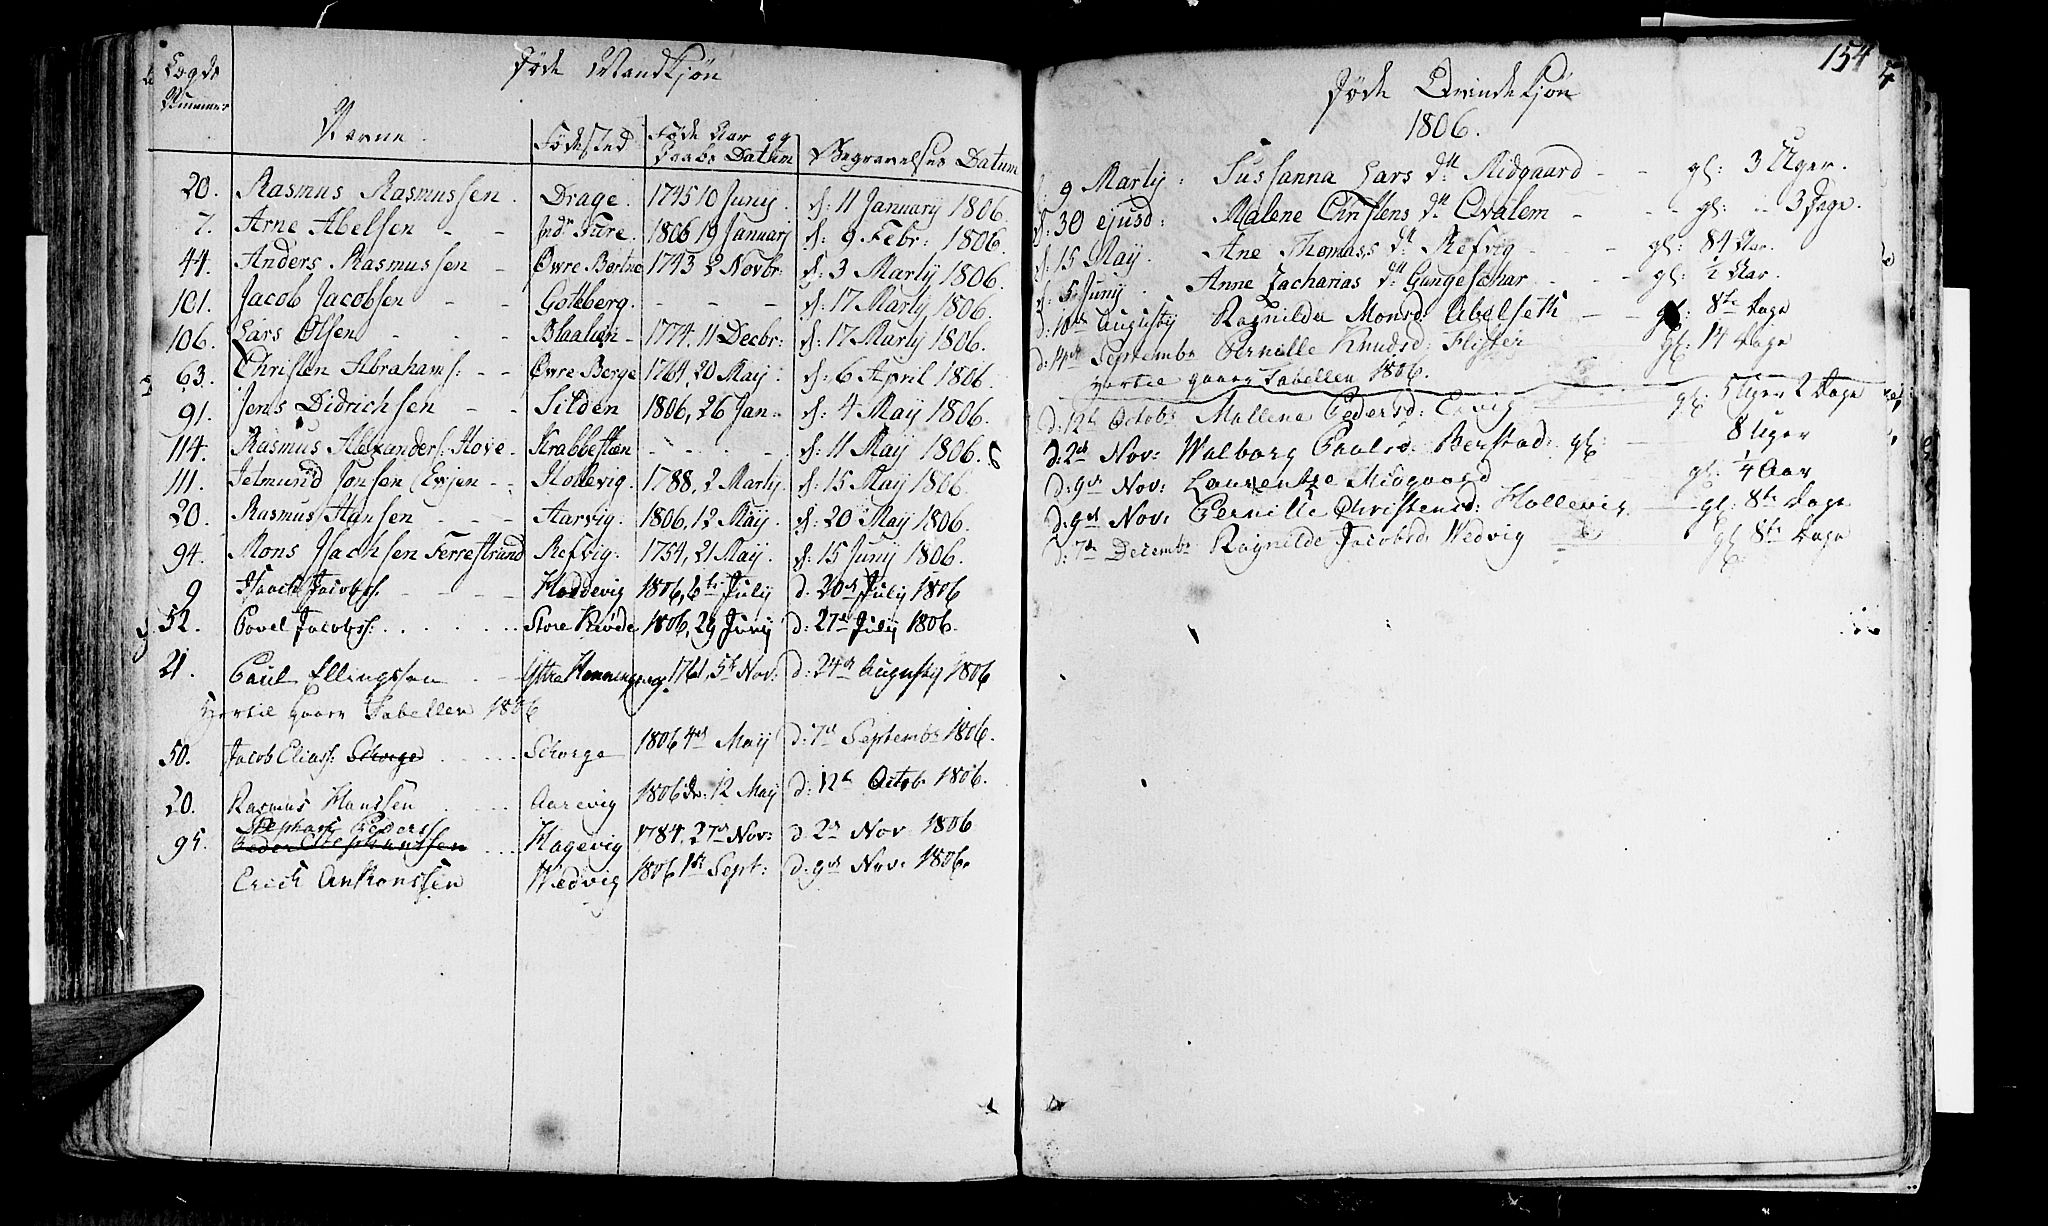 Lægds Nummer
Døde Mandkjøn
Navne Fødested Føde Aar og Daabs Datum Begravelses Datum
20. Rasmus Rasmussen Drage 1745 10 Junij d: 11 Januarij 1806.
7. Arne Abelsen Indr Fure 1806 19 Januarj d: 9 Febr: 1806.
44. Anders Rasmussen Øvre Bortne 1743 2 Novbr: d: 3 Martij 1806.
101. Jacob Jacobsen Gotteberg d: 17 Martij 1806.
106. Lars Olsen Blaalien 1774. 11 Decbr: d: 17 Martij 1806.
63. Christen Abrahams: Øvre Berge 1764, 20 Maij d: 6 April 1806.
91. Jens Didrichsen Silden 1806, 26 Jan. d: 4 Maij 1806.
114. Rasmus Alexanders: Hove Krabbesteen d: 11 Maij 1806.
111. Jetmund Jonsen Ervien Hollevig 1788, 2 Martij d: 15 Maij 1806.
20. Rasmus Hansen Aarvig 1806, 12 Maij d: 20 Maij 1806.
94. Mons Isachsen Ferrestrand Refvig 1754, 21 Maij d: 15 Junij 1806.
9 Isaach Jacobs: Hoddevig 1806, 6te Julij d. 20de Julij 1806
52. Povel Jacobss: Store 1806, 29 Junij d: 27de Julij 1806.
21. Paul Ellingssen Yttre Henningsvog. 1761, 5te Nov: d: 24de Augustij 1806
Hertil gaaer Tabellen 1806
50. Jacob Eliass: Schorge Schorge 1806 4de Maij d: 7de Septembr 1806.
20. Rasmus Hanssen Aarevig 1806 d. 12 May d: 12te Octob 1806.
Stephan Pederss
95. Peder Stephanssen Hagevig 1784. 27de Nov: d: 2den Nov 1806
Erich Anthonssen Wedvig 1806 1ste Sept: d: 9de Nov: 1806.
154
Døde Qvindekjøn
1806.
d: 9 Martij: Sussanna Lars dtt Midgaard gl: 3 Uger.
d: 30 ejusd: Malene Christens dtr Qvalem gl: 3 Dage.
d: 15 Maij Ane Thomass dtt Refvig gl: 84 Aar.
d: 5 Junij Anne Zacharias dtt Gangeschar gl: ½ Aar.
d: 10de Augustij Ragnilda Monsd: Abelseth gl: 8te Dage
d: 14de Septembr Pernille Knudsd: Flister gl: 14 Dage
Hertil gaaer Tabellen 1806.
d: 12te Octobr Mallene Pedersd: Ervig gl: 5 Uger 2 Dage
d: 2de Nov: Walborg Paulsd: Berstad: gl: 8 Uger
d: 9de Nov: Laurentze Midgaard gl: ¼ Aar
d: 9de Nov: Pernille Christensd: Hollevig gl: 8te Dage
d: 7de Decembr Ragnilde Jacobsd: Wedvig gl: 8te Dage